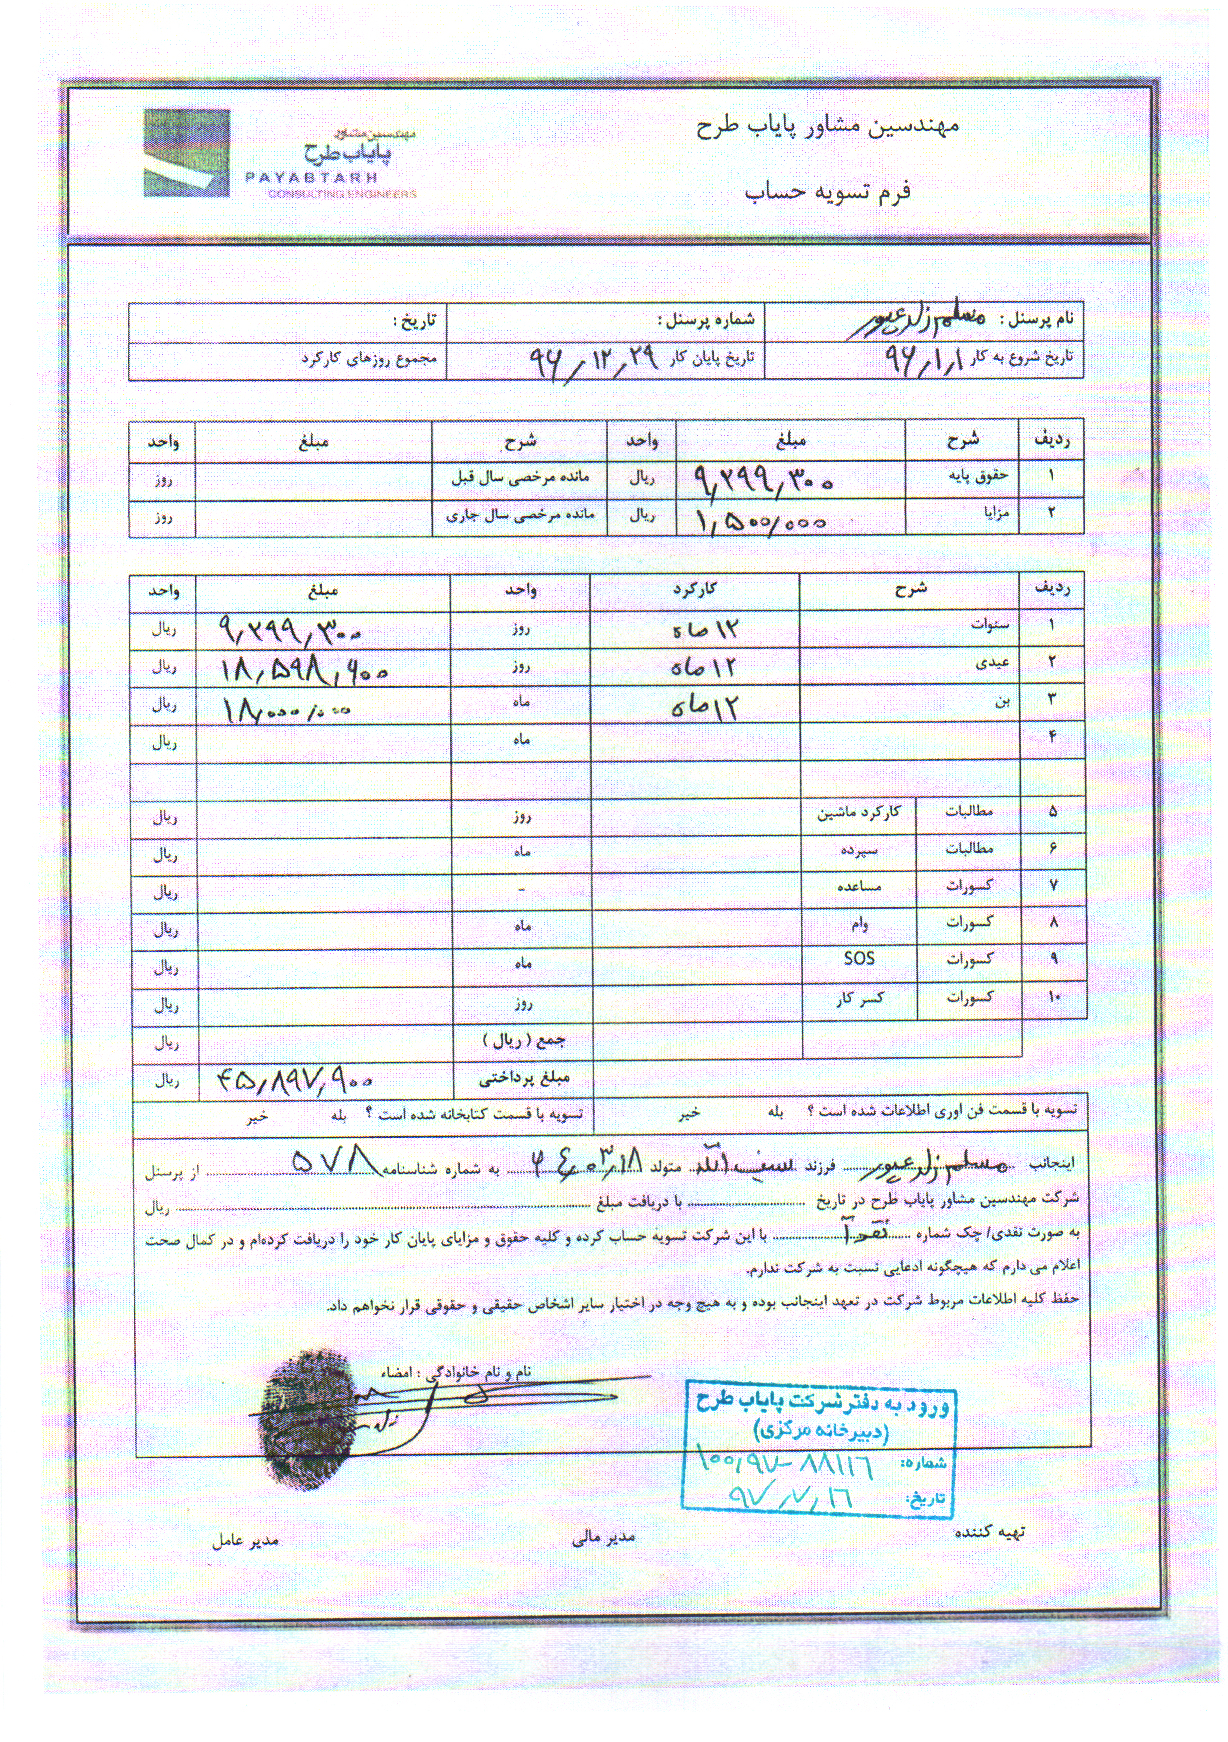 مهندسین مشاور پایاب طرح
مهندسین مشاور
پایاب طرح
PAYABTARH
CONSULTING ENGINEERS
فرم تسویه حساب
نام پرسنل : مسلم شماره پرسنل : تاریخ :
تاریخ شروع به کار ۹۶/۱/۱ تاریخ پایان کار ۹۶/۱۲/۲۹ مجموع روزهای کارکرد
ردیف شرح مبلغ واحد شرح مبلغ واحد
۱ حقوق پایه ۹,۲۹۹,۳۰۰ ریال مانده مرخصی سال قبل روز
۲ مزایا ۱,۵۰۰/۰۰۰ ریال مانده مرخصی سال جاری روز
ردیف شرح کارکرد واحد مبلغ واحد
۱ سنوات ۱۲ ماه روز ۹,۲۹۹,۳۰۰ ریال
۲ عیدی ۱۲ ماه روز ۱۸,۵۹۸,۶۰۰ ریال
۳ بن ۱۲ ماه ماه ۱۸,۰۰۰/۰۰۰ ریال
۴ ماه ریال
۵ مطالبات کارکرد ماشین روز ریال
۶ مطالبات سپرده ماه ریال
۷ کسورات مساعده - ریال
۸ کسورات وام ماه ریال
۹ کسورات SOS ماه ریال
۱۰ کسورات کسر کار روز ریال
جمع ( ریال ) ریال
مبلغ پرداختی ۴۵,۸۹۷,۹۰۰ ریال
تسویه با قسمت فن اوری اطلاعات شده است ؟ بله خیر تسویه با قسمت کتابخانه شده است ؟ بله خیر
اینجانب مسلم فرزند سیف الله متولد ۶۴,۰۳,۱۸ به شماره شناسنامه ۵۷۸ از پرسنل
شرکت مهندسین مشاور پایاب طرح در تاریخ با دریافت مبلغ ریال
به صورت نقدی/ چک شماره نقداً با این شرکت تسویه حساب کرده و کلیه حقوق و مزایای پایان کار خود را دریافت کرده‌ام و در کمال صحت
اعلام می دارم که هیچگونه ادعایی نسبت به شرکت ندارم.
حفظ کلیه اطلاعات مربوط شرکت در تعهد اینجانب بوده و به هیچ وجه در اختیار سایر اشخاص حقیقی و حقوقی قرار نخواهم داد.
نام و نام خانوادگی : امضاء
ورود به دفتر شرکت پایاب طرح
(دبیرخانه مرکزی)
شماره: ۱۰۰,۹۷-۸۸۱۱۶
تاریخ: ۹۷,۷,۱۶
تهیه کننده مدیر مالی مدیر عامل